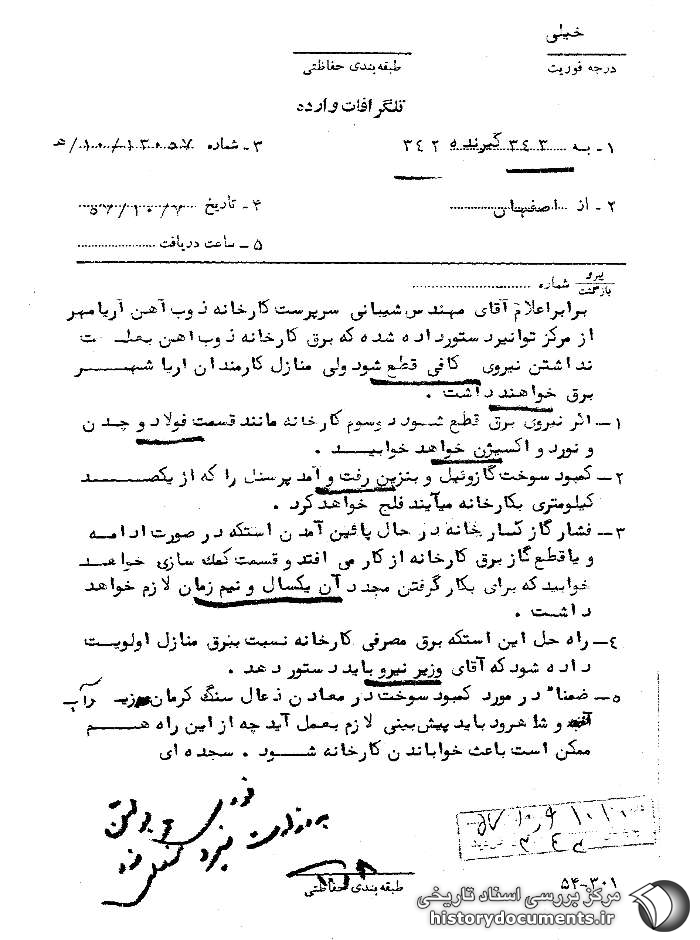 خیلی
درجه فوریت
طبقه‌بندی حفاظتی
تلگرافات وارده
۱ - به ۳٤۳ گیرنده ۳٤۲
۳ - شماره ۱۳۰۵۷ /۱۰/هـ
۲ - از اصفهان
۴ - تاریخ
۵ - ساعت دریافت
پیرو بازگشت شماره
برابر اعلام آقای مهندس شیبانی سرپرست کارخانه ذوب آهن آریامهر
از مرکز توانیر دستور داده شده که برق کارخانه ذوب اهن بعلت
نداشتن نیروی کافی قطع شود ولی منازل کارمندان اریا شهر
برق خواهند داشت .
۱- اگر نیروی برق قطع شود دوسوم کارخانه مانند قسمت فولاد و چدن
و نورد و اکسیژن خواهد خوابید .
۲- کمبود سوخت گازوئیل و بنزین رفت و آمد پرسنل را که از یکصد
کیلومتری بکارخانه میآیند فلج خواهد کرد .
۳- فشار گاز کارخانه در حال پائین آمدن استکه در صورت ادامه
و یا قطع گاز برق کارخانه از کار می افتد و قسمت کک سازی خواهد
خوابید که برای بکار گرفتن مجدد آن یکسال و نیم زمان لازم خواهد
داشت .
٤- راه حل این استکه برق مصرفی کارخانه نسبت ببرق منازل اولویت
داده شود که آقای وزیر نیرو باید دستور دهد .
۵- ضمناً در مورد کمبود سوخت در معادن ذغال سنگ کرمان
و شاهرود باید پیش‌بینی لازم بعمل آید چه از این راه هم
ممکن است باعث خواباندن کارخانه شود . سجده ای
فوری
به وزارت نیرو
طبقه‌بندی حفاظتی
۵۴-۳۰۱
مرکز بررسی اسناد تاریخی
historydocuments.ir